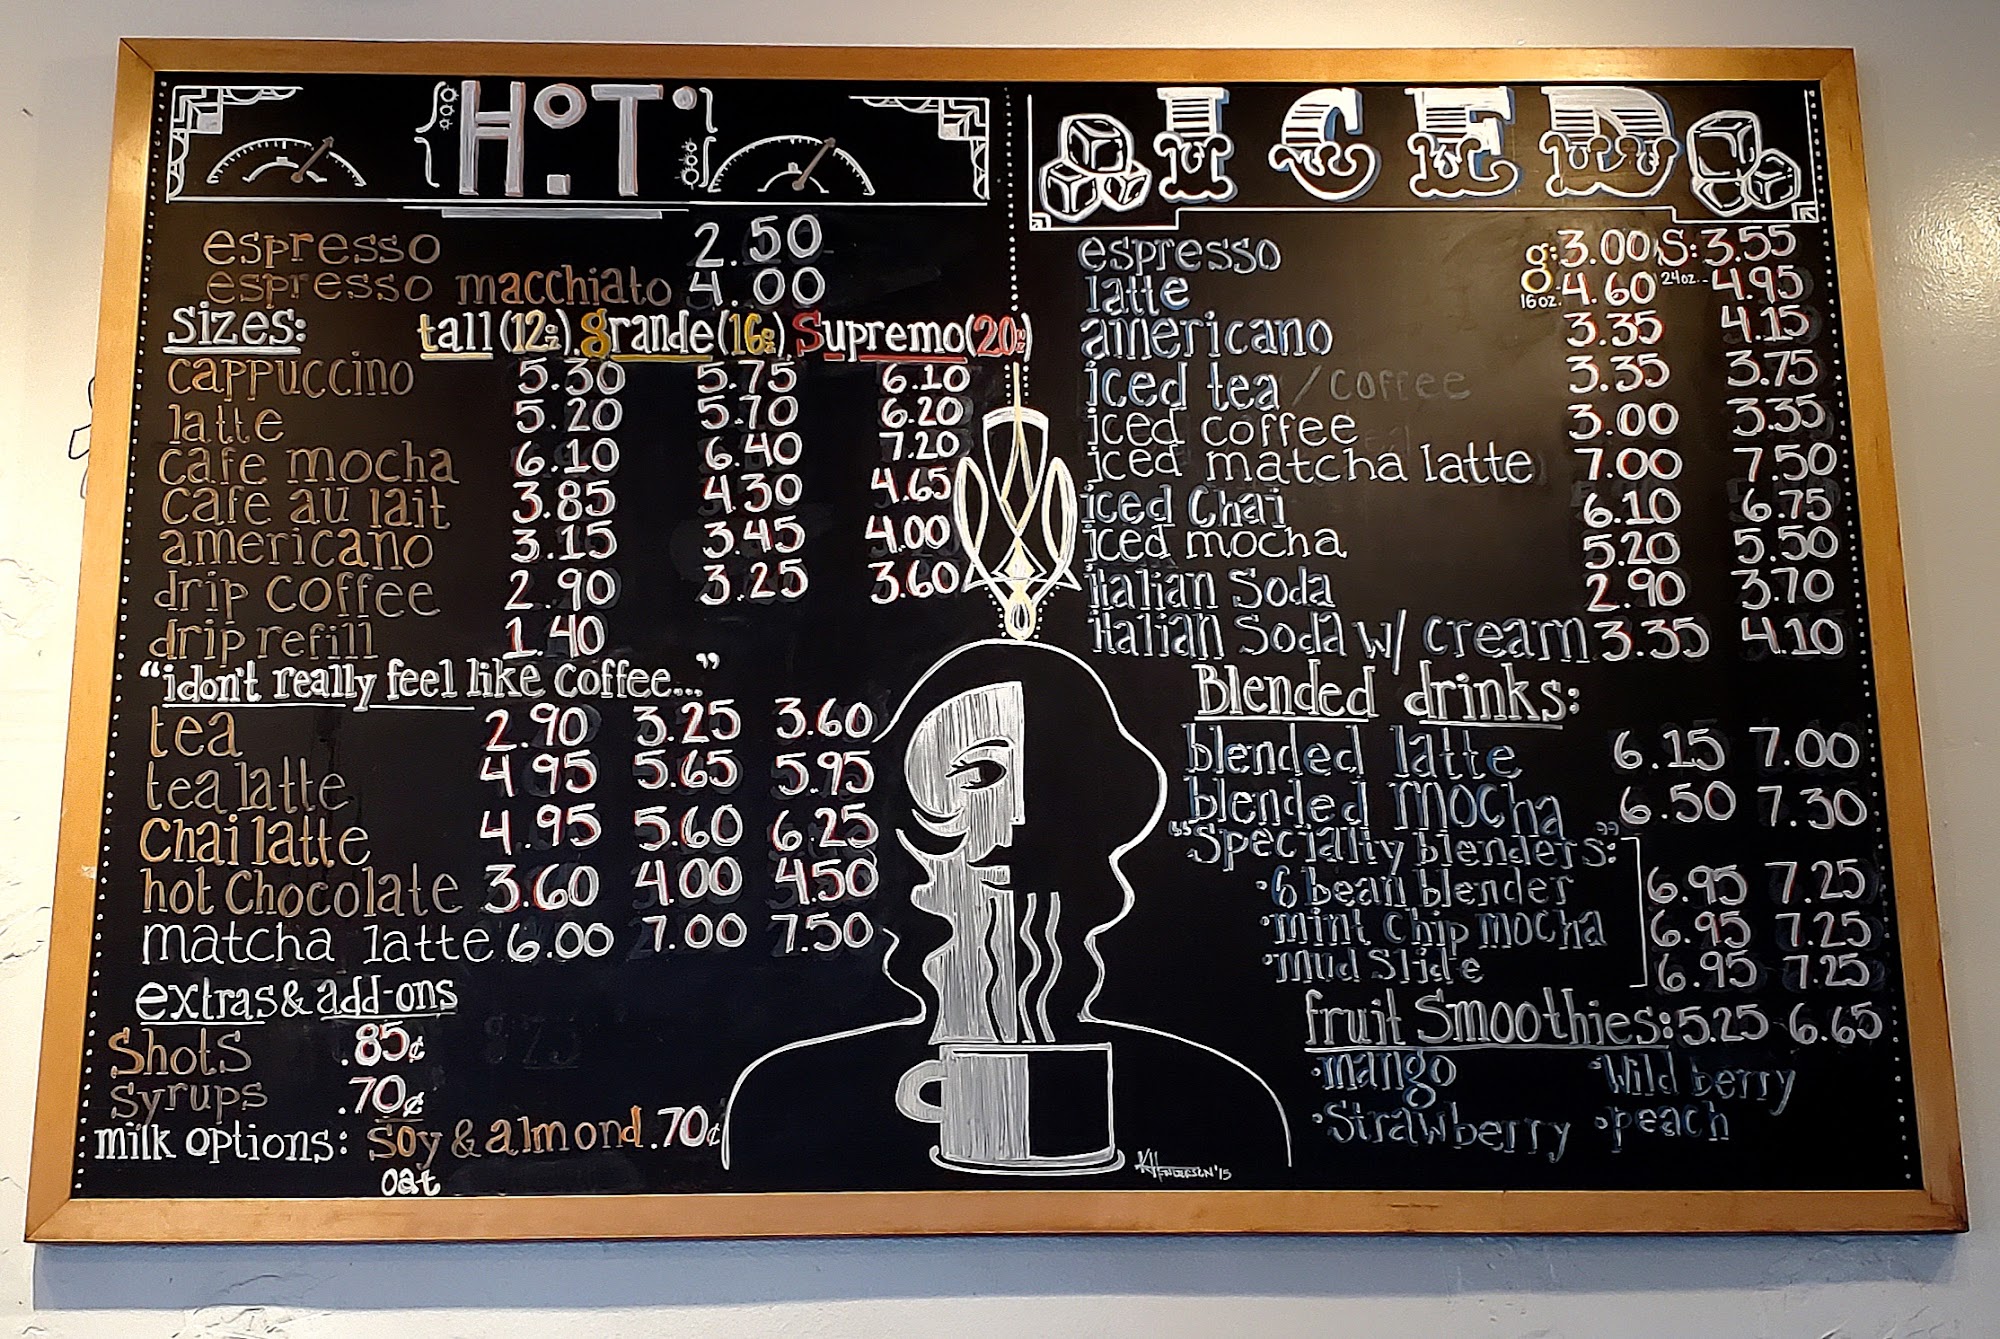 HOT
espresso 2.50
espresso macchiato 4.00
sizes: tall (12oz) grande (16oz) Supremo (20oz)
cappuccino 5.30 5.75 6.10
latte 5.20 5.70 6.20
cafe mocha 6.10 6.40 7.20
cafe au lait 3.85 4.30 4.65
americano 3.15 3.45 4.00
drip coffee 2.90 3.25 3.60
drip refill 1.40
"i don't really feel like coffee..."
tea 2.90 3.25 3.60
tea latte 4.95 5.65 5.95
Chai latte 4.95 5.60 6.25
hot Chocolate 3.60 4.00 4.50
matcha latte 6.00 7.00 7.50
extras & add-ons
Shots .85¢
Syrups .70¢
milk options: soy & almond .70¢
oat
ICED
espresso g: 3.00 S: 3.55
latte g 16oz. 4.60 24oz. 4.95
americano 3.35 4.15
iced tea / coffee 3.35 3.75
iced coffee 3.00 3.35
iced matcha latte 7.00 7.50
iced Chai 6.10 6.75
iced mocha 5.20 5.50
italian Soda 2.90 3.70
italian Soda w/ cream 3.35 4.10
Blended drinks:
blended latte 6.15 7.00
blended mocha 6.50 7.30
"Specialty blenders:"
·6 bean blender 6.95 7.25
·mint chip mocha 6.95 7.25
·mud slide 6.95 7.25
fruit Smoothies: 5.25 6.65
·mango ·Wild berry
·Strawberry ·peach
KHenderson '15